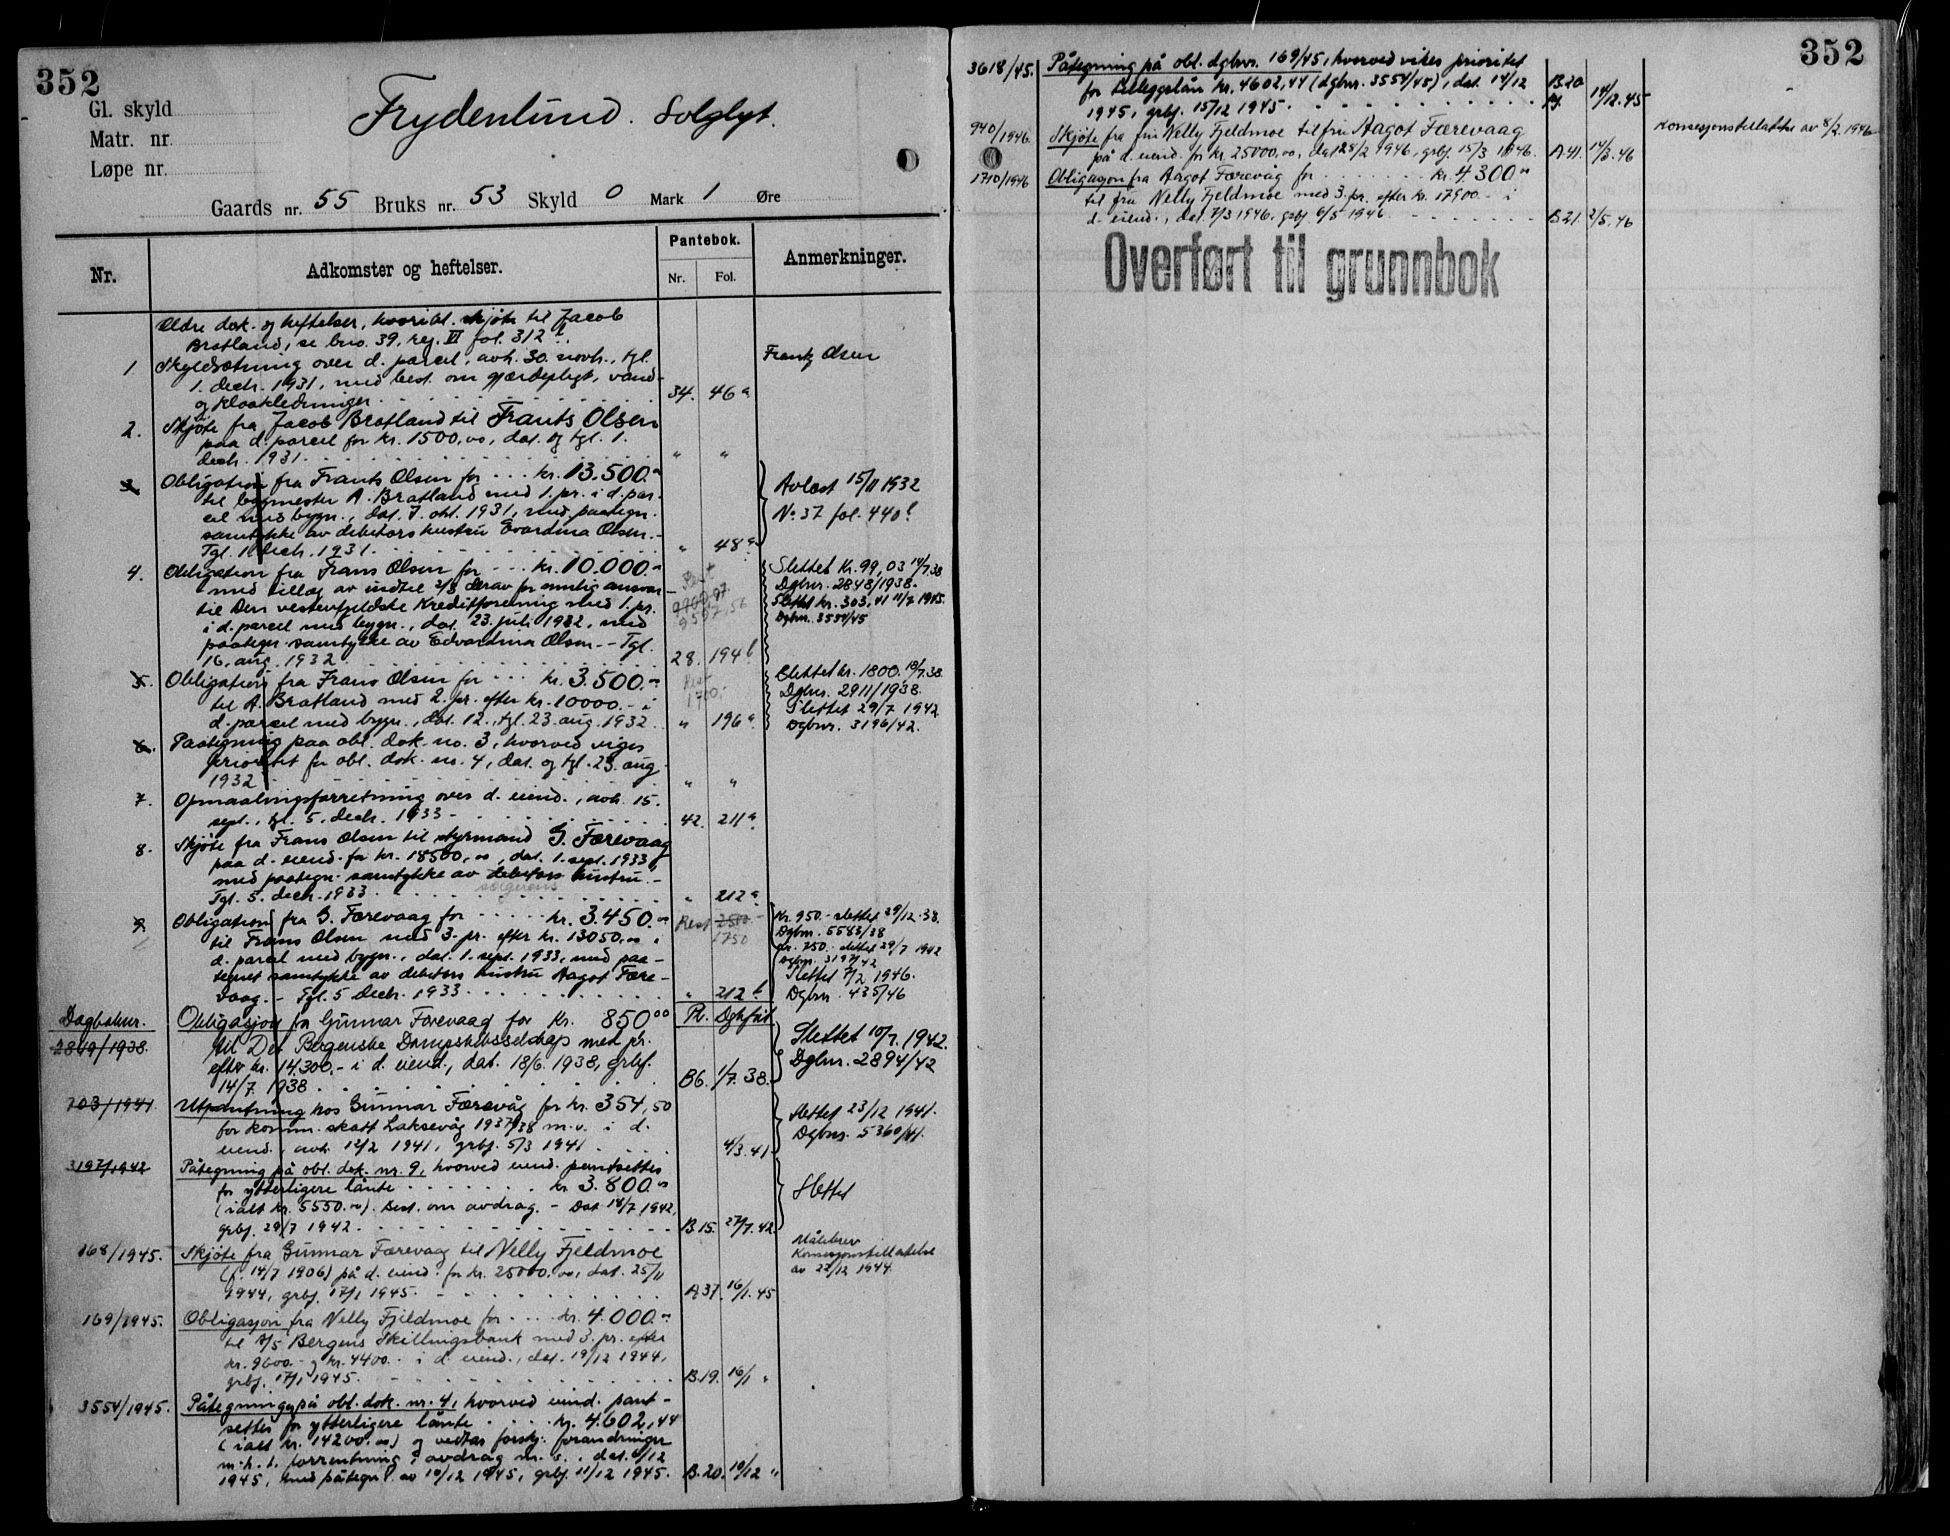 352
Gl. skyld
Matr. nr.
Løpe nr.
Frydenlund. Solglyt.
Gaards nr. 55 Bruks nr. 53 Skyld 0 Mark 1 Øre
Nr. Adkomster og heftelser. Pantebok. Nr. Fol. Anmerkninger.
Ældre dok. og heftelser, hvoribl. skjøte til Jacob
Bratland, se bno. 39, reg. VI fol. 312
1 Skyldsætning over d. parcel, avh. 30. novb., tgl. Frantz Olsen
1. decb. 1931, med best. om gjærdepligt, vand-
og kloakledninger. 34. 46 a
2. Skjøte fra Jacob Bratland til Frants Olsen
paa d. parcel for kr. 1500,00, dat. og tgl. 1.
decb. 1931 " "
3 Obligation fra Frants Olsen for kr. 13.500.- Avlæst 15/11 1932
til bygmester A. Bratland med 1. pr. i d. par- No 37 fol. 440 b
cel med bygn., dat. 7. okt. 1931, med paategn.
samtykke av debitors hustru Evardina Olsen.-
Tgl. 1 decb. 1931. " 48 a
4. Obligation fra Frans Olsen for kr. 10.000.- Slettet Kr. 99,03 14/7.38
med tillæg av indtil 2/3 derav for mulig ansvar Rest Dgbnr. 2848/1938.
til Den vestenfjeldske Kreditforening med 1. pr. 9900,97 Slettet kr. 303,41 11/12 1945.
i d. parcel med bygn., dat. 23. juli 1932, med 9597,56 Dgbnr. 3554/45
paategn. samtykke av Edvardina Olsen.- Tgl.
16. aug. 1932 28. 194 b
5. Obligation fra Frans Olsen for kr. 3.500.- Rest Slettet kr. 1800, 18/7.38.
til A. Bratland med 2. pr. efter kr. 10000.- i 1700.- Dgbnr. 2911/1938.
d. parcel med bygn., dat. 12., tgl. 23. aug. 1932. " 196 a Slettet 29/7 1942
Dgbnr. 3196/42.
6. Paategning paa obl. dok. no. 3, hvorved viges
prioritet for obl. dok. nr. 4, dat. og tgl. 23. aug.
1932 " "
7. Opmaalingsforretning over d. eiend., avh. 15.
sept., tgl. 5. decb. 1933 42. 211 a
8. Skjøte fra Frans Olsen til styrmand G. Færevaag
paa d. eiend. for kr. 18500,00, dat. 1. sept. 1933
med paategn. samtykke av debitors hustru.-
sælgerens
Tgl. 5. decb. 1933 " 212 a
9 Obligation fra G. Færevaag for kr. 3.450.- Rest 2500 Kr. 950.- slettet 29/12.38.
til Frans Olsen med 3. pr. efter kr. 13050,00 i 1750 Dgbnr. 5583/38
d. parcel med bygn., dat. 1. sept. 1933, med paa- kr. 750.- slettet 29/7 1942
tegnet samtykke av debitors hustru Aagot Fære- Dgbnr. 3197/42
vaag.- Tgl. 5 decb. 1933 " 212 b Slettet 7/2 1946.
Dgbnr. 435/46
Dagboknr. Obligasjon fra Gunnar Forevaag for kr. 850 00 Pb. Dgbført
2849/1938. til Det Bergenske Dampskibsselskap med pr. Slettet 10/7. 1942.
efter kr. 14.300.- i d. eiend., dat. 18/6. 1938, grbf. Dgbnr. 2894/42
14/7 1938. B6. 1/7. 38.
703/1941. Utpantning hos Gunnar Færevåg for kr. 354,50
for komm. skatt Laksevåg 1937/38 m.v. i d. Slettet 23/12 1941.
eiend., avh. 12/2 1941, grbf. 5/3 1941 4/3.41 Dgbnr. 5360/41.
3197/1942 Påtegning på obl. dok. nr. 9, hvorved eiend. pantsettes
for ytterligere lånte kr. 3.800.- Slettet
(ialt kr. 5550.00). Best. om avdrag. - Dat 14/7 1942,
grbf. 29/7 1942. B.15. 27/7.42.
168/1945. Skjøte fra Gunnar Færevaag til Nelly Fjeldmoe Målebrev
(f. 14/7 1906) på d. eiend. for kr. 25000.00, dat. 25/11 Konsesjonstillatelse
1944, grbf. 17/1 1945. A37. 16/1.45 av 22/12 1944.
169/1945. Obligasjon fra Nelly Fjeldmoe for kr. 4.000.-
til A/S Bergens Skillingsbank med 3. pr. efter
kr. 9600.- og kr. 4400.- i d. eiend., dat. 19/12 1944,
grbf. 17/1 1945. B.19. 16/1 "
3554/1945. Påtegning på obl. dok. nr. 4, hvorved eiend. pant-
settes for ytterligere lånte kr. 4.602,44
(ialt kr. 14200.00) og vedtas forskj. forandringer
m.h.t. forrentning, avdrag m.v., dat. 6/12
1945, med påtegn. av 10/12 1945, grbf. 11/12 1945. B.20. 10/12 "
352
3618/45. Påtegning på obl. dgbnr. 169/45, hvorved vikes prioritet
for tilleggslån kr. 4602,44 (dgbnr. 3554/45), dat. 14/12 B.20
1945, grbf. 15/12 1945. 14/12.45
940/1946. Skjøte fra fru Nelly Fjeldmoe til fru Aagot Færevaag Konsesjonstillatelse av 8/2 1946
på d. eiend. for kr. 25000,00, dat 28/2 1946, grbf. 15/3 1946. A.41. 14/3.46
1710/1946 Obligasjon fra Aagot Færevåg for kr. 4.300.-
til fru Nelly Fjeldmoe med 3. pr. efter kr. 17900.- i
d. eiend., dat. 7/3 1946, grbf. 6/5 1946. B21. 2/5.46
Overført til grunnbok